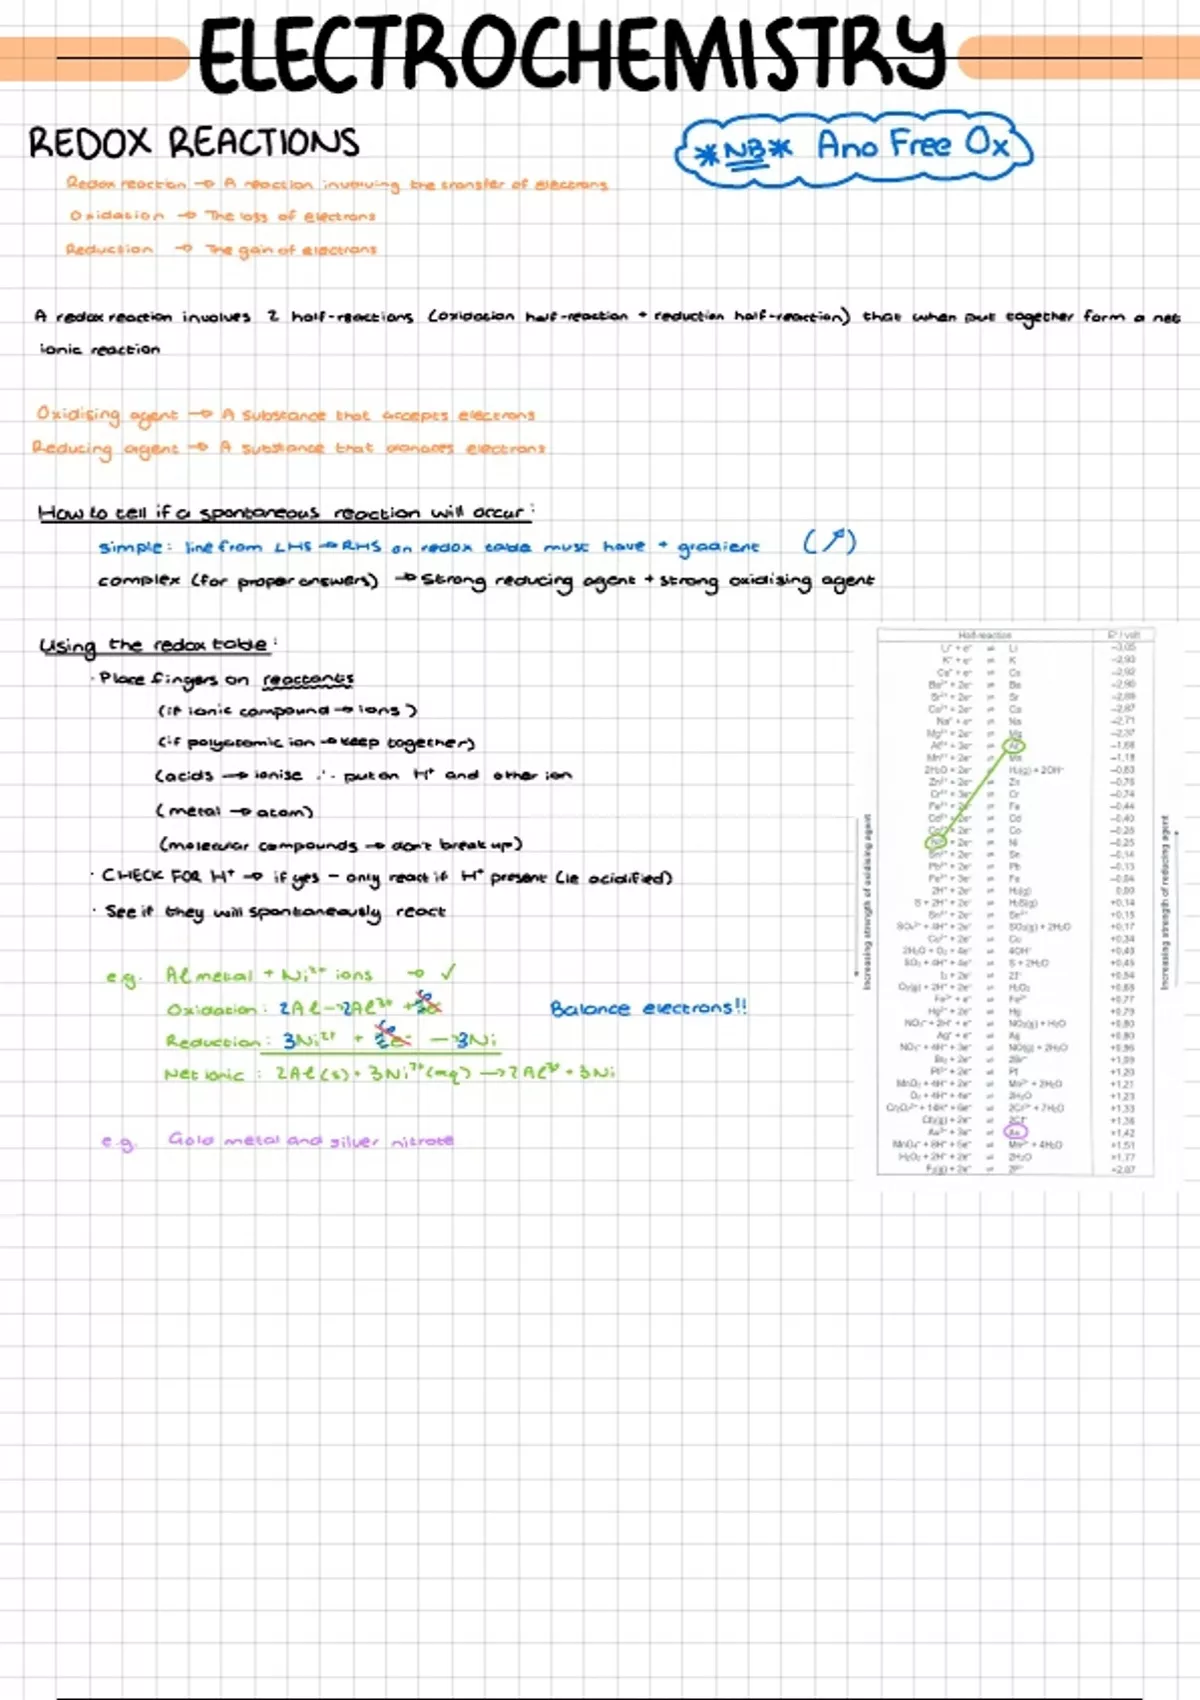 ELECTROCHEMISTRY
REDOX REACTIONS
*NB* Ano Free Ox
Redox reaction → A reaction involving the transfer of electrons
Oxidation → The loss of electrons
Reduction → The gain of electrons
A redox reaction involves 2 half-reactions (oxidation half-reaction + reduction half-reaction) that when put together form a net
ionic reaction
Oxidising agent → A substance that accepts electrons
Reducing agent → A substance that donates electrons
How to tell if a spontaneous reaction will occur:
simple: line from LHS → RHS on redox table must have + gradient (↗)
complex (for proper answers) → Strong reducing agent + strong oxidising agent
Using the redox table:
· Place fingers on reactants
(if ionic compound → ions)
(if polyatomic ion → keep together)
(acids → ionise ∴ put on H⁺ and other ion
(metal → atom)
(molecular compounds → don't break up)
· CHECK FOR H⁺ → if yes - only react if H⁺ present (ie acidified)
· See if they will spontaneously react
e.g. Al metal + Ni²⁺ ions → ✓
Oxidation: 2Al → 2Al³⁺ + 6e
Balance electrons!!
Reduction: 3Ni²⁺ + 6e⁻ → 3Ni
Net ionic: 2Al(s) + 3Ni²⁺(aq) → 2Al³⁺ + 3Ni
e.g. Gold metal and silver nitrate
Half-reaction E°/volt
Li⁺ + e⁻ ⇌ Li −3,05
K⁺ + e⁻ ⇌ K −2,93
Cs⁺ + e⁻ ⇌ Cs −2,92
Ba²⁺ + 2e⁻ ⇌ Ba −2,90
Sr²⁺ + 2e⁻ ⇌ Sr −2,89
Ca²⁺ + 2e⁻ ⇌ Ca −2,87
Na⁺ + e⁻ ⇌ Na −2,71
Mg²⁺ + 2e⁻ ⇌ Mg −2,37
Al³⁺ + 3e⁻ ⇌ Al −1,66
Mn²⁺ + 2e⁻ ⇌ Mn −1,18
2H₂O + 2e⁻ ⇌ H₂(g) + 2OH⁻ −0,83
Zn²⁺ + 2e⁻ ⇌ Zn −0,76
Cr³⁺ + 3e⁻ ⇌ Cr −0,74
Fe²⁺ + 2e⁻ ⇌ Fe −0,44
Cd²⁺ + 2e⁻ ⇌ Cd −0,40
Co²⁺ + 2e⁻ ⇌ Co −0,28
Ni²⁺ + 2e⁻ ⇌ Ni −0,25
Sn²⁺ + 2e⁻ ⇌ Sn −0,14
Pb²⁺ + 2e⁻ ⇌ Pb −0,13
Fe³⁺ + 3e⁻ ⇌ Fe −0,04
2H⁺ + 2e⁻ ⇌ H₂(g) 0,00
S + 2H⁺ + 2e⁻ ⇌ H₂S(g) +0,14
Sn⁴⁺ + 2e⁻ ⇌ Sn²⁺ +0,15
SO₄²⁻ + 4H⁺ + 2e⁻ ⇌ SO₂(g) + 2H₂O +0,17
Cu²⁺ + 2e⁻ ⇌ Cu +0,34
2H₂O + O₂ + 4e⁻ ⇌ 4OH⁻ +0,40
SO₂ + 4H⁺ + 4e⁻ ⇌ S + 2H₂O +0,45
I₂ + 2e⁻ ⇌ 2I⁻ +0,54
O₂(g) + 2H⁺ + 2e⁻ ⇌ H₂O₂ +0,68
Fe³⁺ + e⁻ ⇌ Fe²⁺ +0,77
Hg²⁺ + 2e⁻ ⇌ Hg +0,79
NO₃⁻ + 2H⁺ + e⁻ ⇌ NO₂(g) + H₂O +0,80
Ag⁺ + e⁻ ⇌ Ag +0,80
NO₃⁻ + 4H⁺ + 3e⁻ ⇌ NO(g) + 2H₂O +0,96
Br₂ + 2e⁻ ⇌ 2Br⁻ +1,09
Pt²⁺ + 2e⁻ ⇌ Pt +1,20
MnO₂ + 4H⁺ + 2e⁻ ⇌ Mn²⁺ + 2H₂O +1,21
O₂ + 4H⁺ + 4e⁻ ⇌ 2H₂O +1,23
Cr₂O₇²⁻ + 14H⁺ + 6e⁻ ⇌ 2Cr³⁺ + 7H₂O +1,33
Cl₂(g) + 2e⁻ ⇌ 2Cl⁻ +1,36
Au³⁺ + 3e⁻ ⇌ Au +1,42
MnO₄⁻ + 8H⁺ + 5e⁻ ⇌ Mn²⁺ + 4H₂O +1,51
H₂O₂ + 2H⁺ + 2e⁻ ⇌ 2H₂O +1,77
F₂(g) + 2e⁻ ⇌ 2F⁻ +2,87
Increasing strength of oxidising agent
Increasing strength of reducing agent